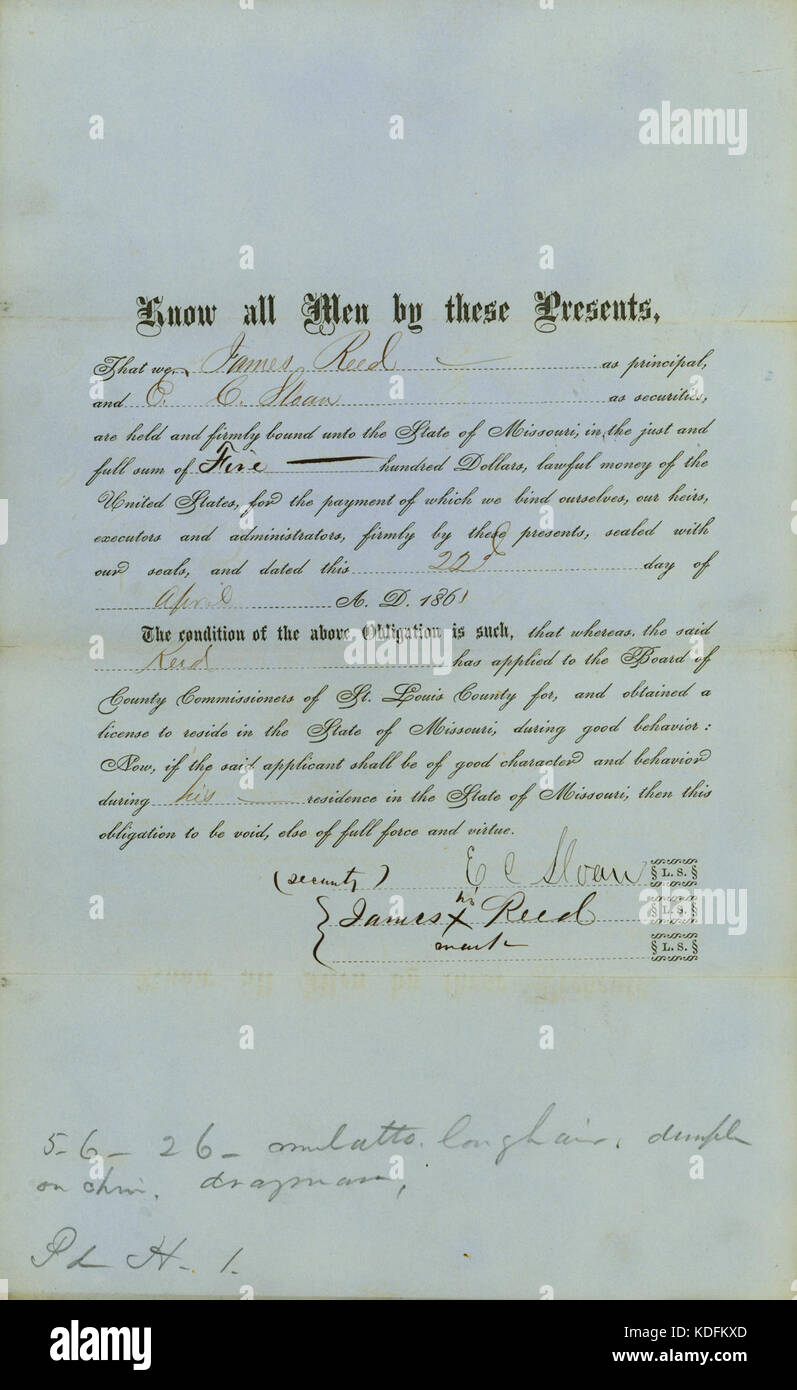 alamy
Know all Men by these Presents,
That we, James Reed as principal,
and E. C. Sloan as securities,
are held and firmly bound unto the State of Missouri, in the just and
full sum of Five hundred Dollars, lawful money of the
United States, for the payment of which we bind ourselves, our heirs,
executors and administrators, firmly by these presents, sealed with
our seals, and dated this 22d day of
April A. D. 1861
The condition of the above Obligation is such, that whereas, the said
Reed has applied to the Board of
County Commissioners of St. Louis County for, and obtained a
license to reside in the State of Missouri, during good behavior:
Now, if the said applicant shall be of good character and behavior
during his residence in the State of Missouri, then this
obligation to be void, else of full force and virtue.
(security) E C Sloan § L. S. §
his
James X Reed § L. S. §
mark § L. S. §
5-6- 26- mulatto. long hair, dimple
on chin. drayman,
Pd H- 1.
alamy
Image ID: KDFKXD
www.alamy.com